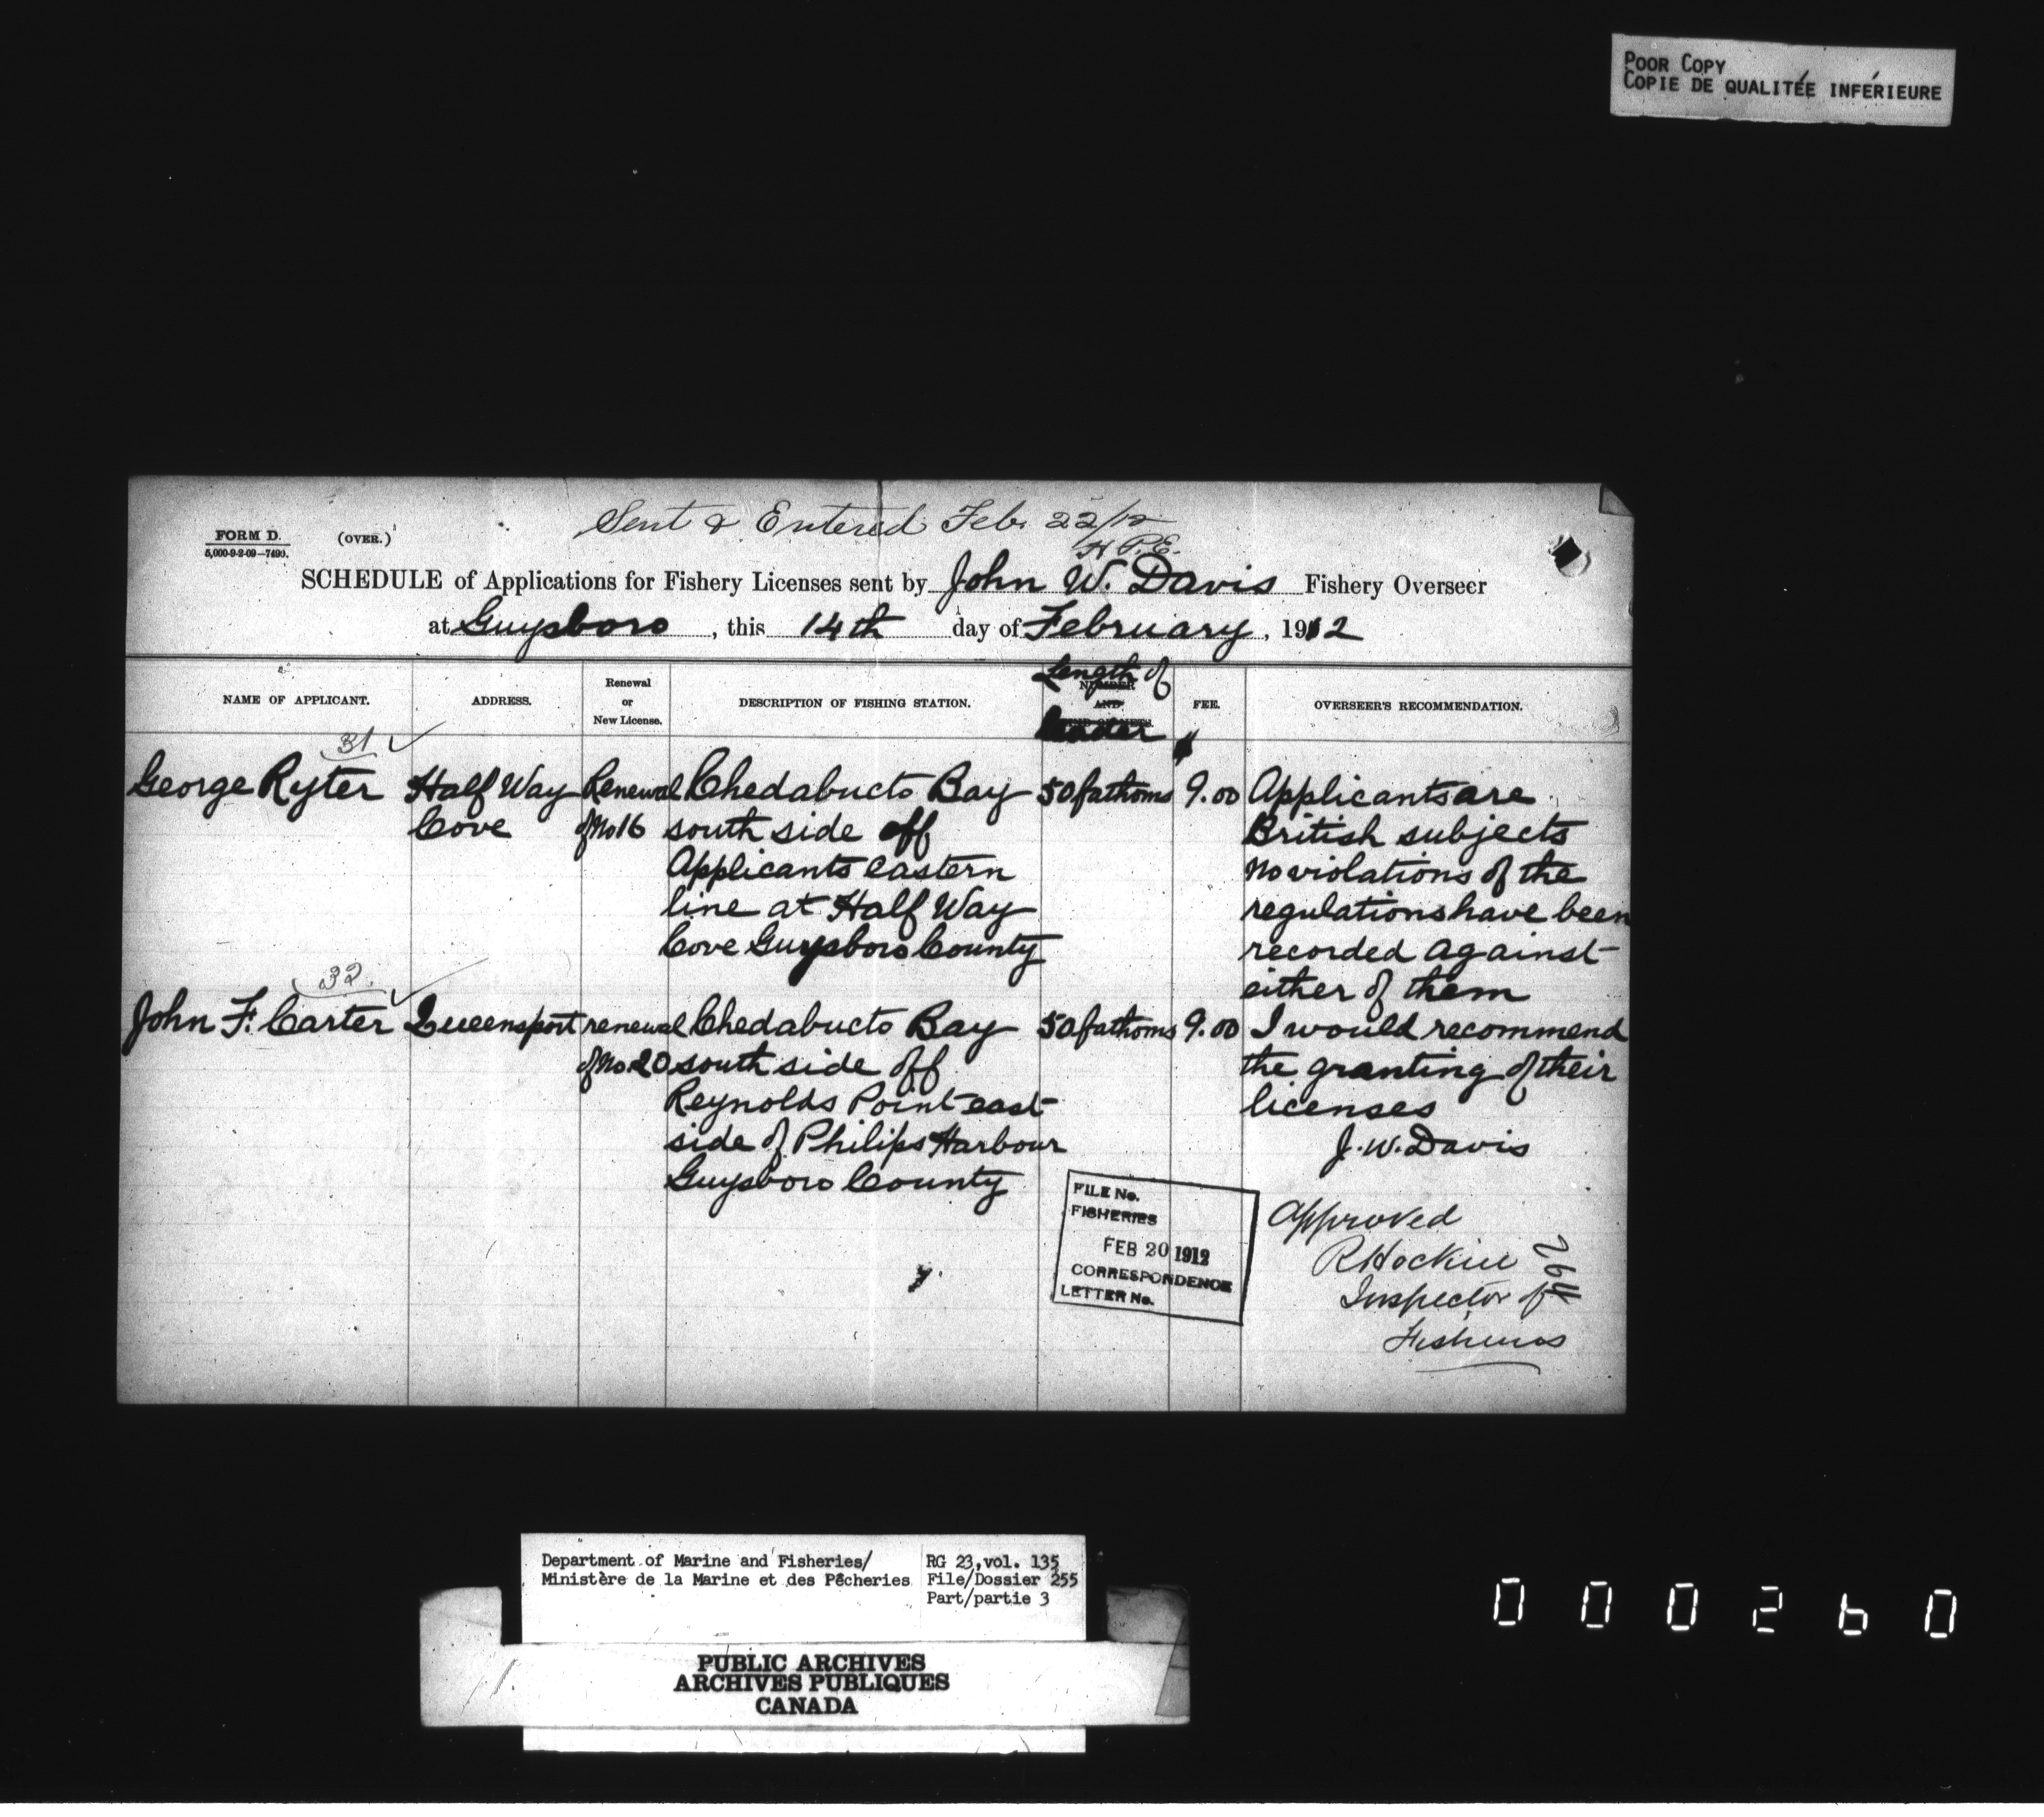 POOR COPY
COPIE DE QUALITÉE INFÉRIEURE
Sent & Entered Feb. 22/12
H.P.E.
FORM D. (OVER.)
5,000-9-2-09—7490.
SCHEDULE of Applications for Fishery Licenses sent by John W. Davis Fishery Overseer
at Guysboro, this 14th day of February, 1912
NAME OF APPLICANT. ADDRESS. Renewal or New License. DESCRIPTION OF FISHING STATION. NUMBER AND KIND OF NETS. Length of Leader FEE. OVERSEER'S RECOMMENDATION.
31 ✓
George Ryter Half Way Renewal Chedabucto Bay 50 fathoms $9.00 Applicants are
Cove of No 16 south side off British subjects
Applicants eastern No violations of the
line at Half Way regulations have been
Cove Guysboro County recorded against
either of them
32. ✓
John F. Carter Queensport renewal Chedabucto Bay 50 fathoms 9.00 I would recommend
of No 20 south side off the granting of their
Reynolds Point east licenses
side of Philips Harbour J. W. Davis
Guysboro County
FILE No.
FISHERIES
FEB 20 1912
CORRESPONDENCE
LETTER No.
Approved
R Hockin
Inspector of
Fisheries
Department of Marine and Fisheries/
Ministère de la Marine et des Pêcheries
RG 23, vol. 135
File/Dossier 255
Part/partie 3
PUBLIC ARCHIVES
ARCHIVES PUBLIQUES
CANADA
000260